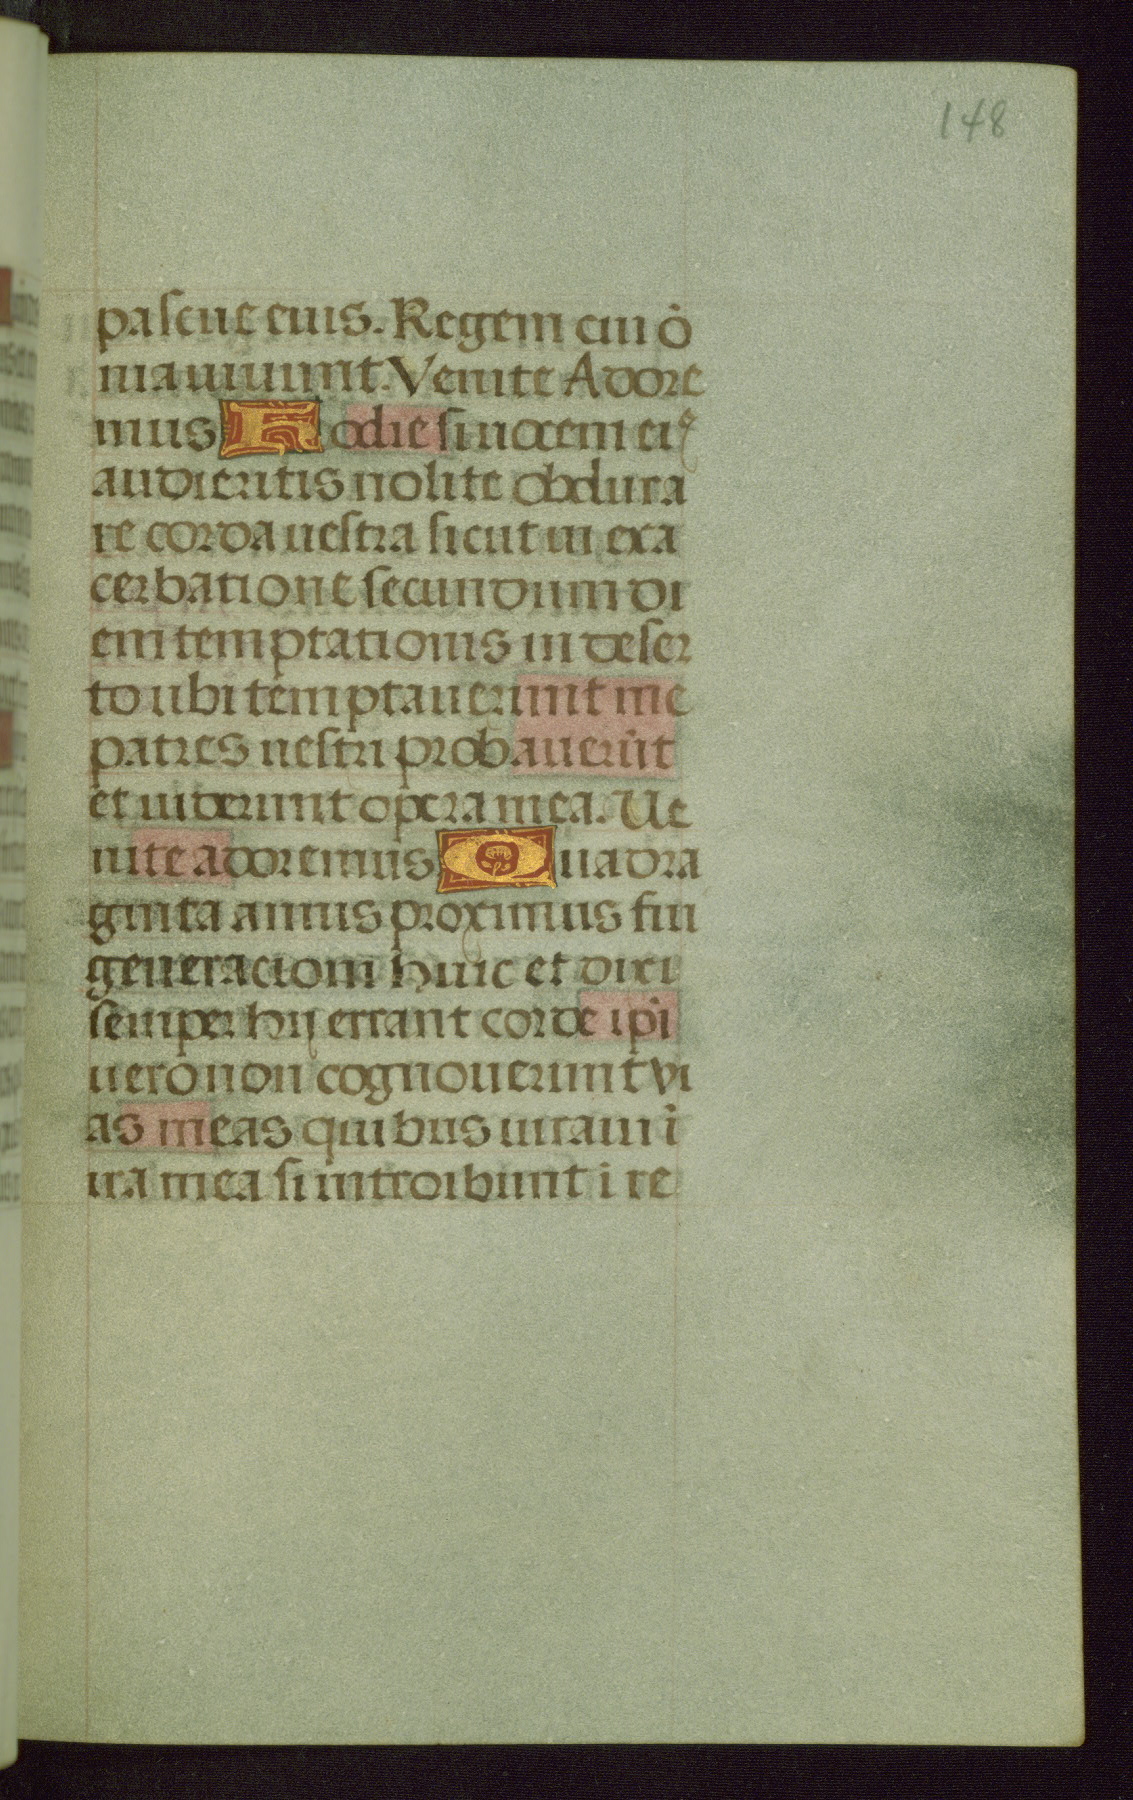 148
pascue eius. Regem cui ō
nia uiuunt. Venite Adore
mus Hodie si uocem ei⁹
audieritis nolite obdura
re corda uestra sicut in exa
cerbatione secundum di
em temptationis in deser
to ubi temptauerunt me
patres uestri probauerūt
et uiderunt opera mea. Ue
nite adoremus Quadra
ginta annis proximus fui
generacioni huic et dixi
semper hij errant corde ip̄i
uero non cognouerunt vi
as meas quibus iuraui ī
ira mea si introibunt i re